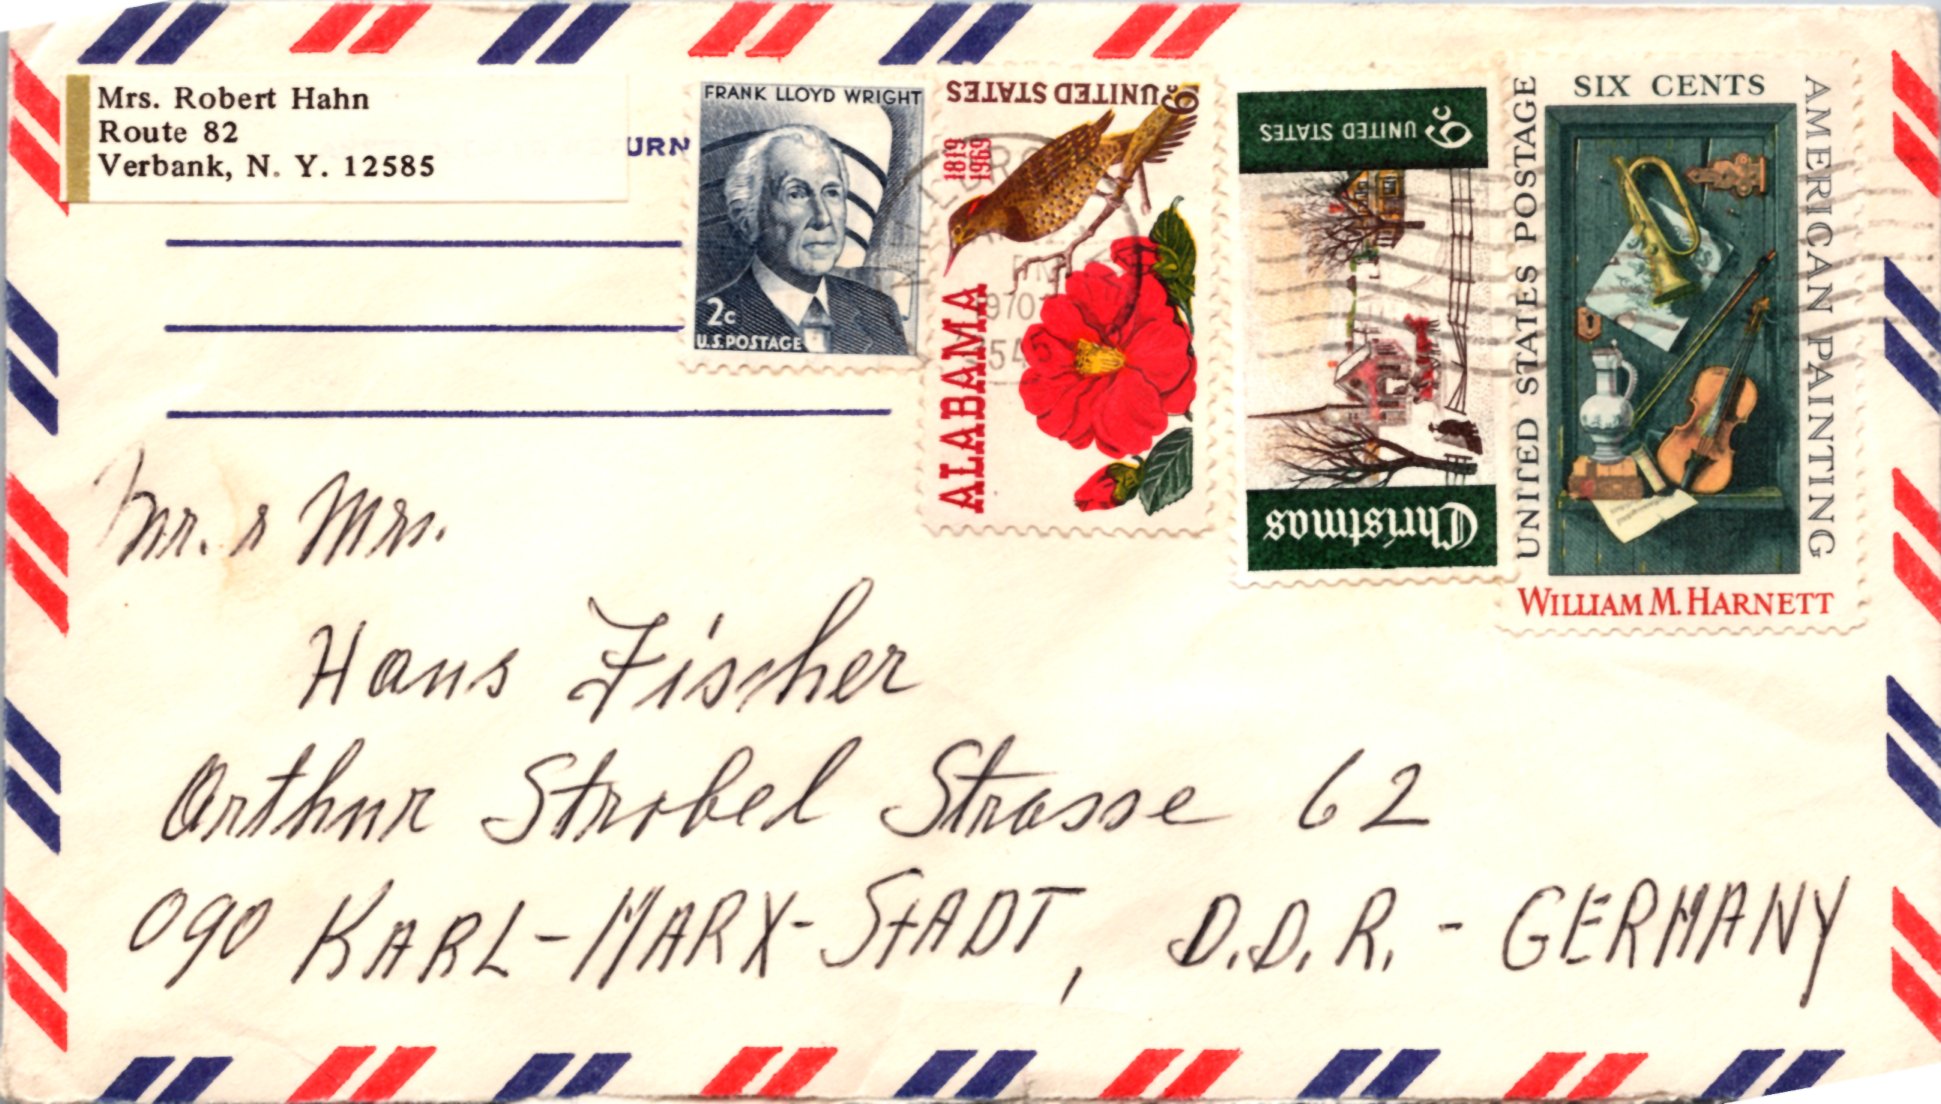 Mrs. Robert Hahn
Route 82
Verbank, N. Y. 12585
URN
FRANK LLOYD WRIGHT
2c
U.S. POSTAGE
UNITED STATES 6c
1819
1969
ALABAMA
1970
UNITED STATES 6c
Christmas
SIX CENTS
UNITED STATES POSTAGE
AMERICAN PAINTING
WILLIAM M. HARNETT
Mr. & Mrs.
Hans Fischer
Arthur Strobel Strasse 62
090 KARL-MARX-STADT, D.D.R. - GERMANY